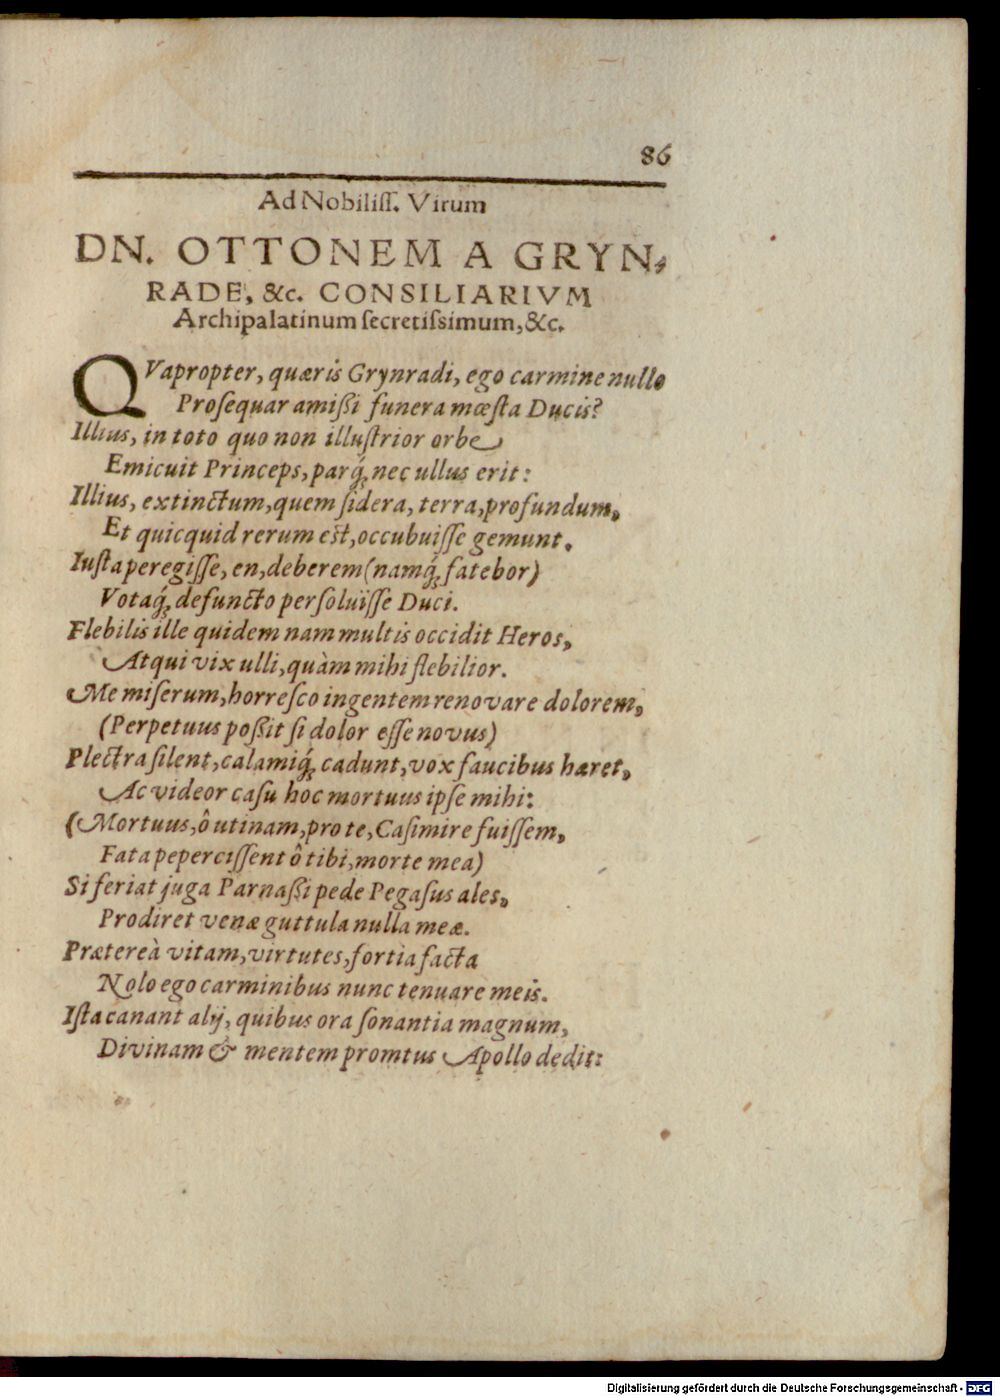 86
Ad Nobiliſſ. Virum
DN. OTTONEM A GRYN-
RADE, &c. CONSILIARIVM
Archipalatinum ſecretiſsimum, &c.
QVapropter, quæris Grynradi, ego carmine nullo
Proſequar amißi funera mœſta Ducis?
Illius, in toto quo non illuſtrior orbe
Emicuit Princeps, parq́; nec ullus erit:
Illius, extinctum, quem ſidera, terra, profundum,
Et quicquid rerum est, occubuiſſe gemunt.
Iuſta peregiſſe, en, deberem (namq́; fatebor)
Votaq́; defuncto perſoluiſſe Duci.
Flebilis ille quidem nam multis occidit Heros,
Atqui vix ulli, quàm mihi flebilior.
Me miſerum, horreſco ingentem renovare dolorem,
(Perpetuus poßit ſi dolor eſſe novus)
Plectra ſilent, calamiq́; cadunt, vox faucibus hæret,
Ac videor caſu hoc mortuus ipſe mihi:
(Mortuus, ô utinam, pro te, Caſimire fuiſſem,
Fata peperciſſent ô tibi, morte mea)
Si feriat juga Parnaßi pede Pegaſus ales,
Prodiret venæ guttula nulla meæ.
Prætereà vitam, virtutes, fortia facta
Nolo ego carminibus nunc tenuare meis.
Iſta canant alij, quibus ora ſonantia magnum,
Divinam & mentem promtus Apollo dedit:
Digitalisierung gefördert durch die Deutsche Forschungsgemeinschaft - DFG